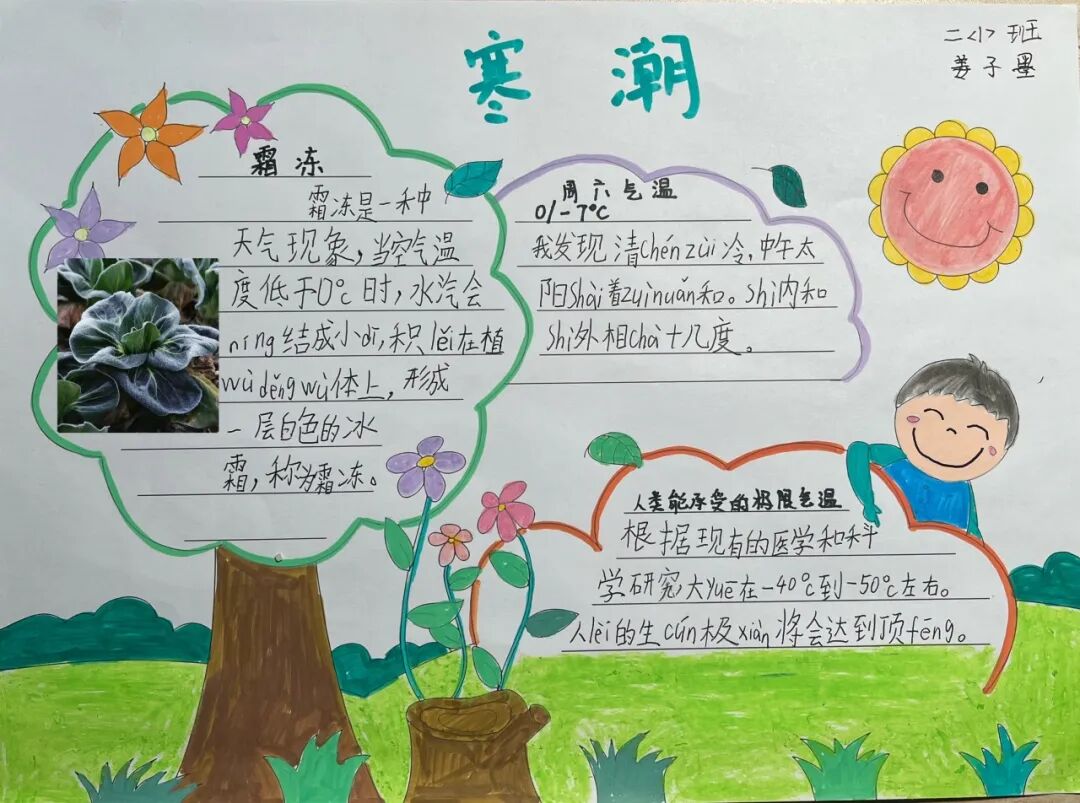 寒潮
二<1>班
姜子墨
霜冻
霜冻是一种
天气现象，当空气温
度低于0℃时，水汽会
níng结成小dī，积lěi在植
wù děng wù体上，形成
一层白色的冰
霜，称为霜冻。
周六气温
0/-7℃
我发现清chén zùi冷，中午太
阳shài着zuì nuǎn和。shì内和
shì外相chà十几度。
人类能承受的极限气温
根据现有的医学和科
学研究大yuē在-40℃到-50℃左右。
人lèi的生cún极xiàn将会达到顶fēng。